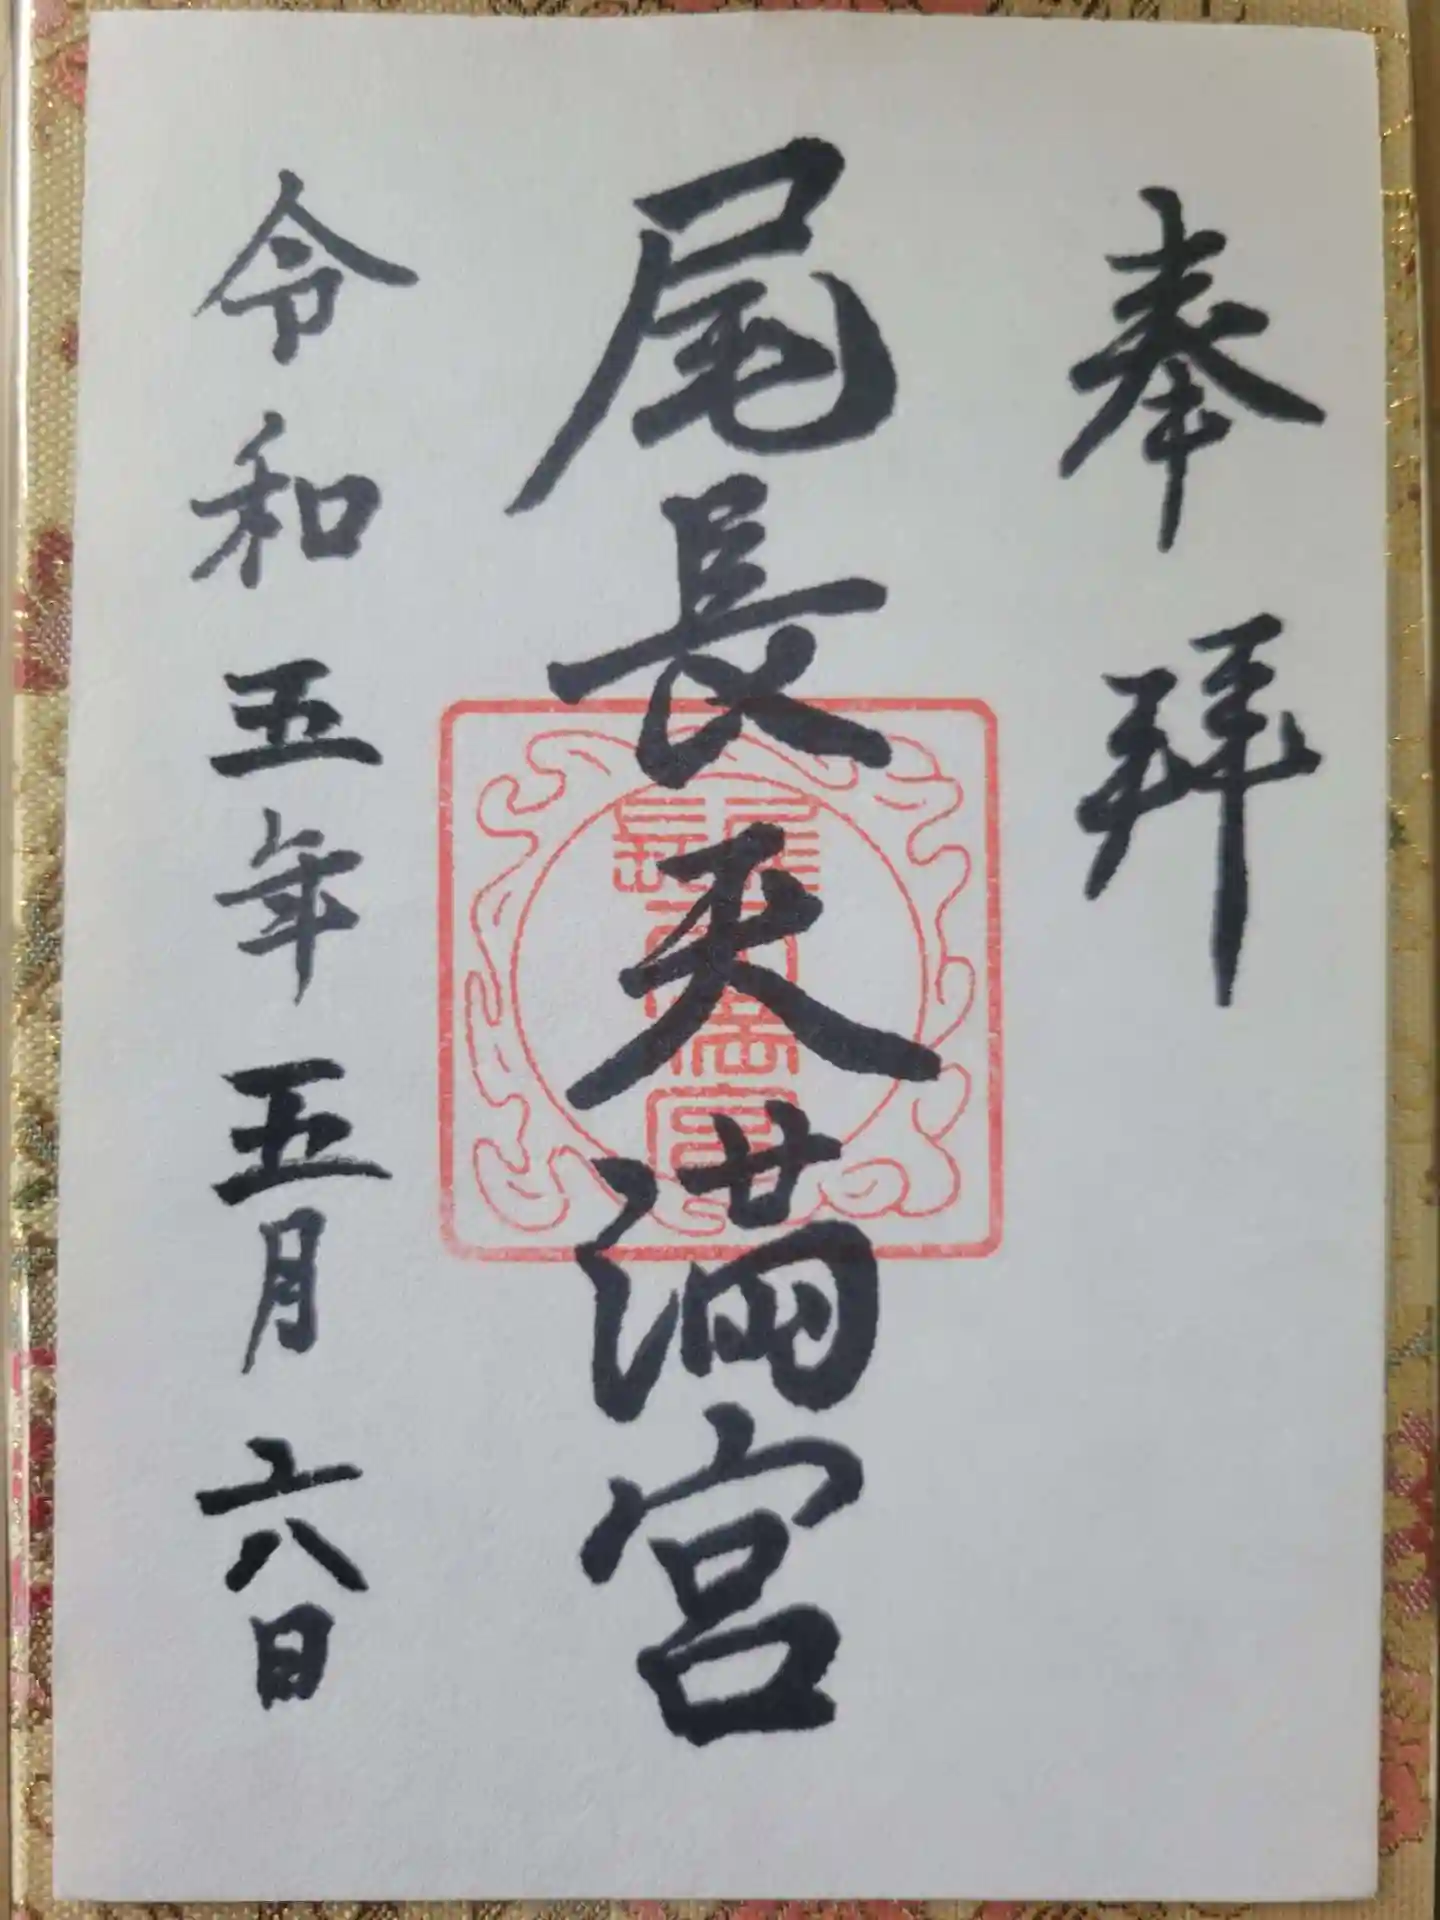 奉拝
尾長天満宮
尾長天満宮
令和五年五月六日